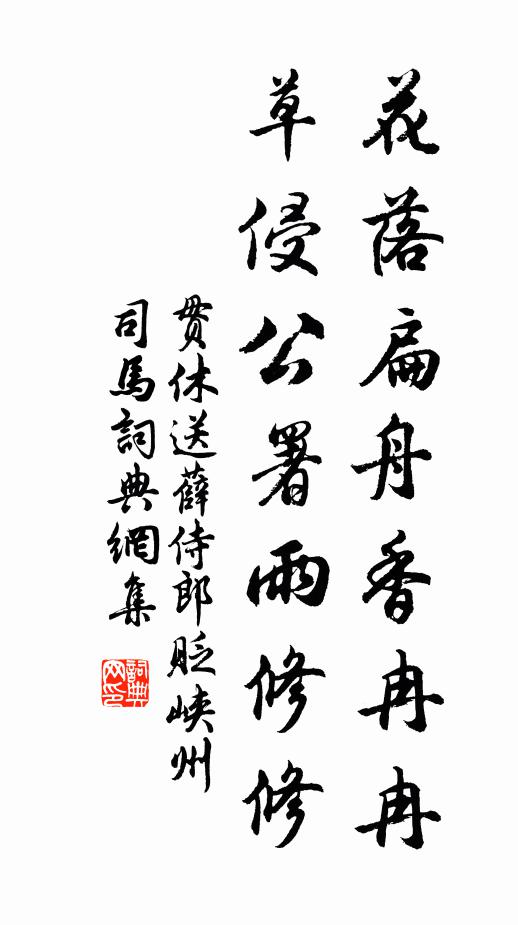 花落扁舟香冉冉
草侵公署雨修修
貫休送薛侍郎貶峽州
司馬詞典網集
詞典网印